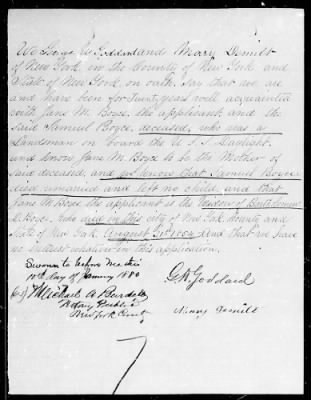 We George W Goddard and Mary Demilt
of New York, in the County of New York and
State of New York, on oath, say that we are
and have been for Twenty years well acquainted
with Jane M. Boyce, the applicant, and the
said Samuel Boyce, deceased, who was a
Landsman on board the U. S. S. Daylight.
and know Jane M. Boyce to be the Mother of
said deceased, and you know that Samuel Boyce
died unmarried and left no child, and that
Jane M. Boyce the applicant is the Widow of
M. Boyce. who died in this city of New York County and
State of New York. August 31st and that we have
no interest whatever in this application.
Sworn to before me this
10th day of January 1880
Michael A. Burdett
Notary Public
New York County
G. W. Goddard
Mary Demilt